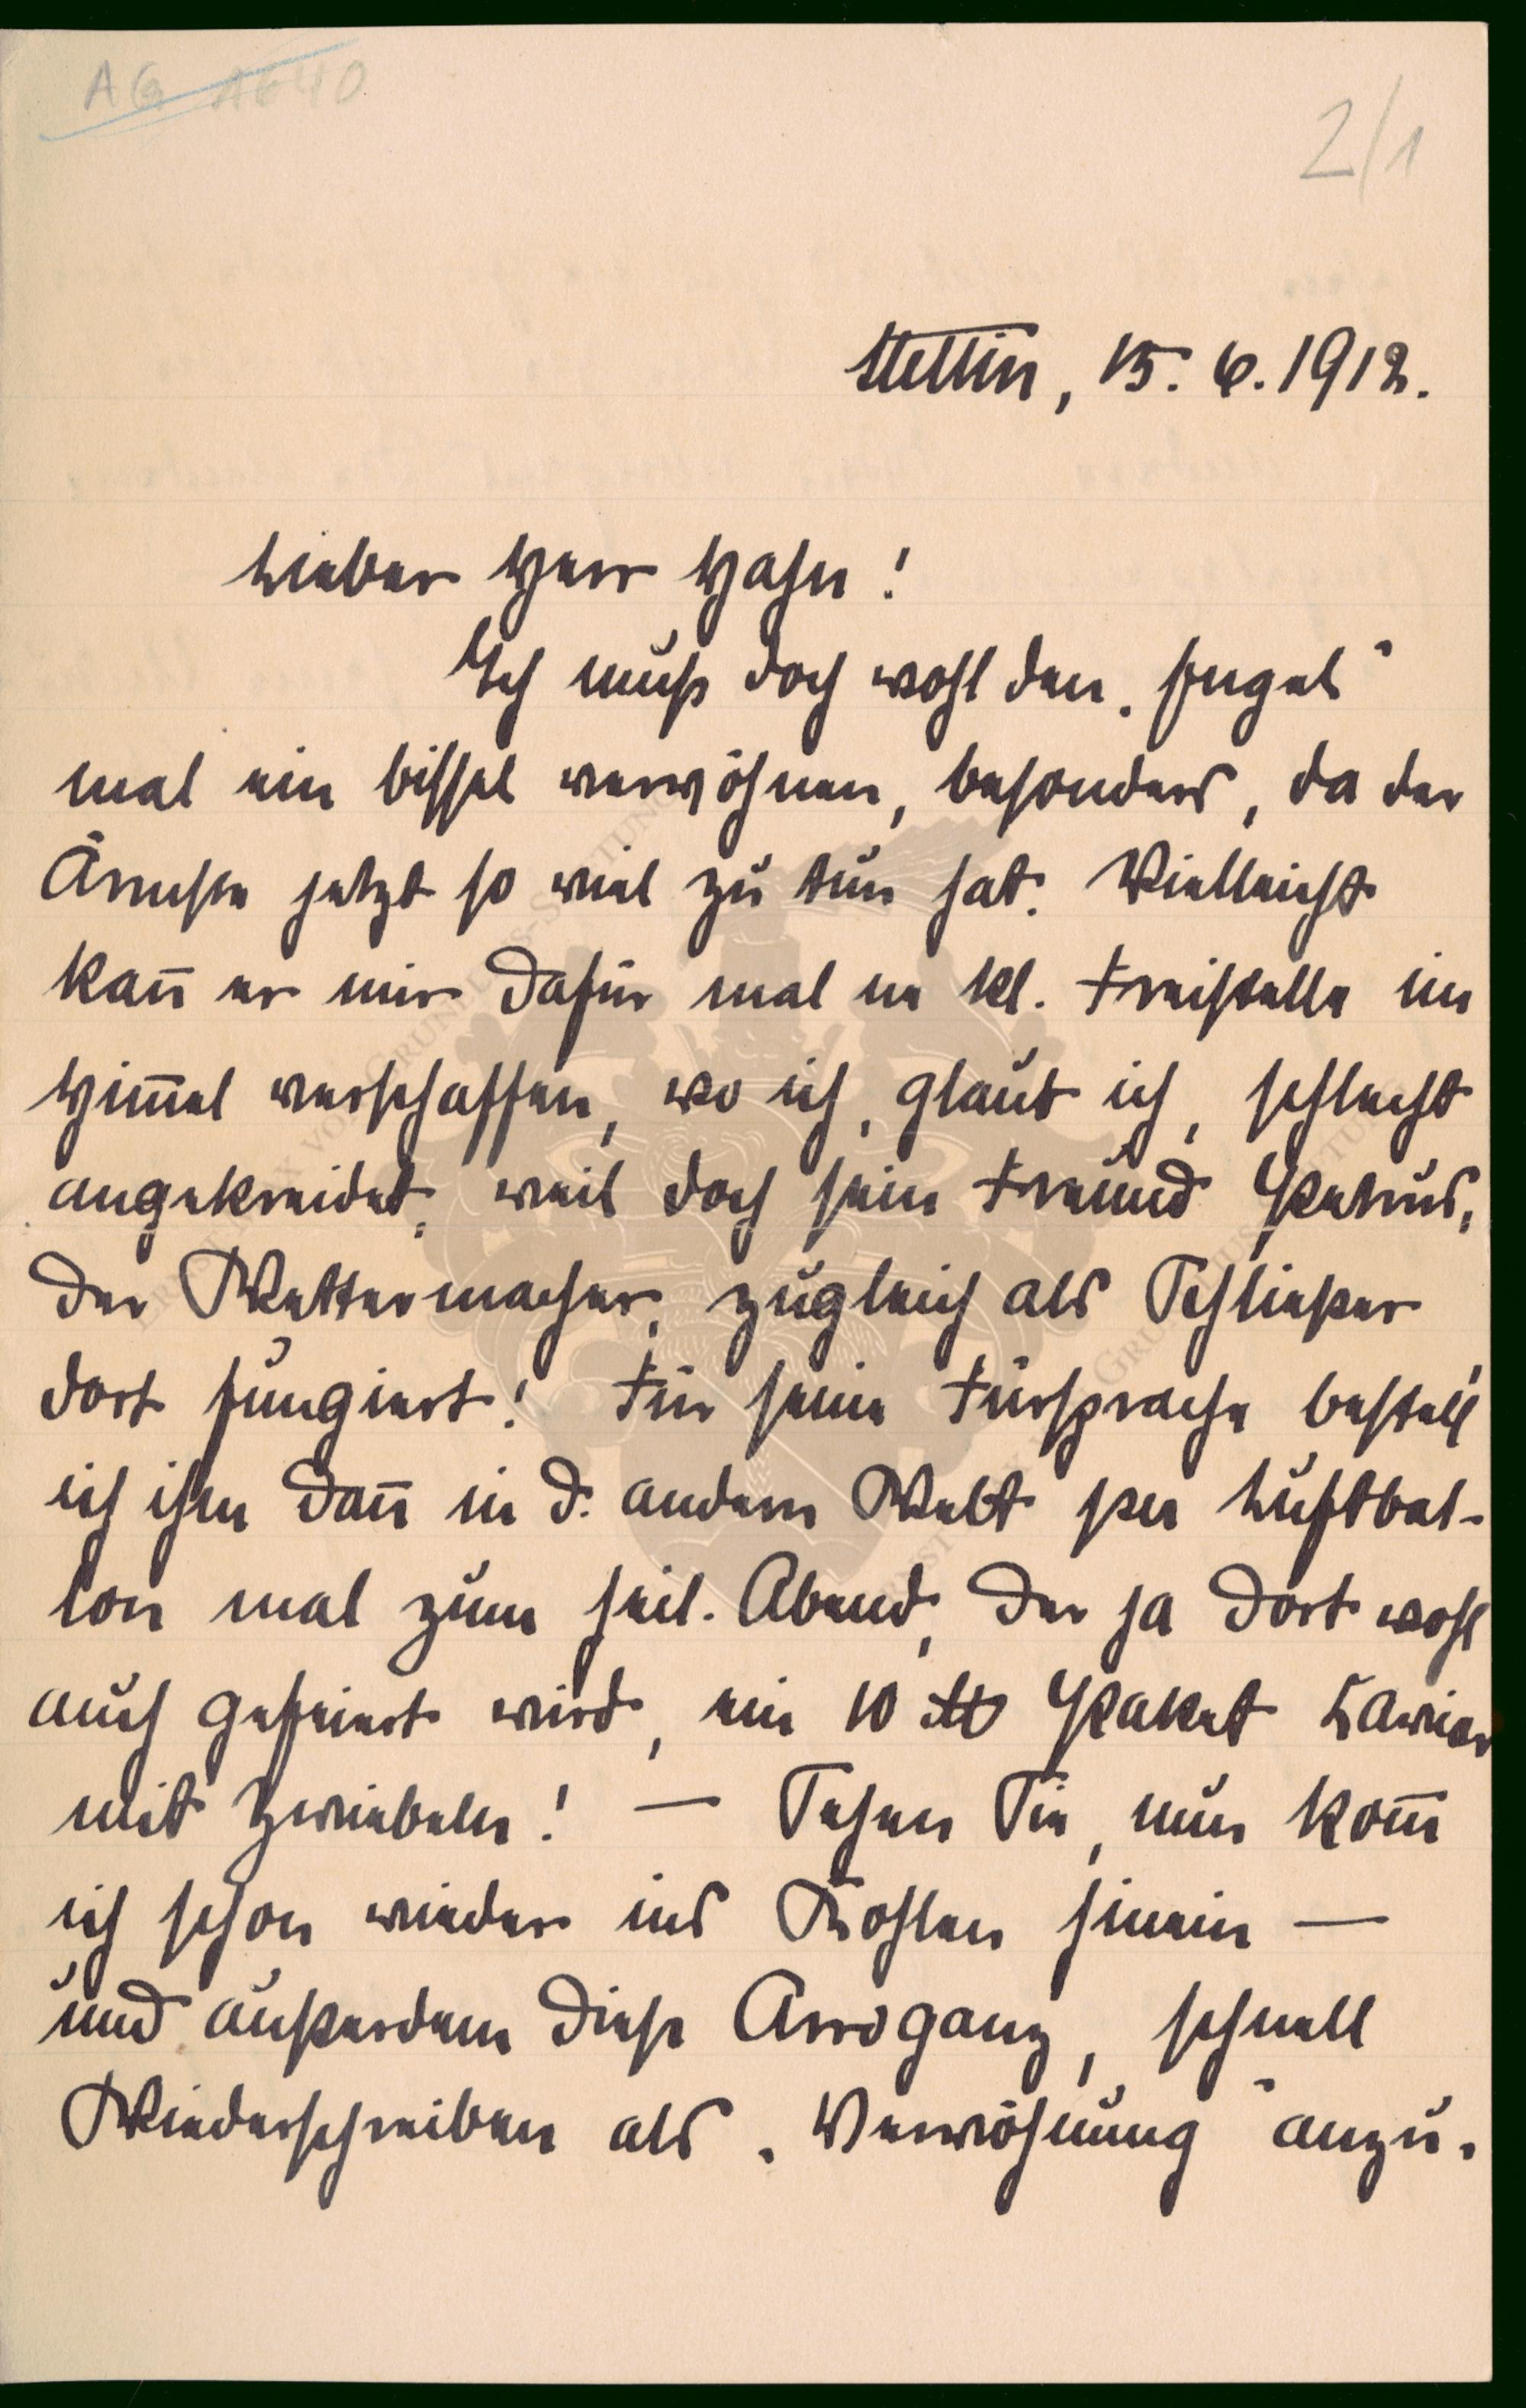 AG AE40
2/1
Stettin, 15. 6. 1912.
Lieber Herr Hahn!
Ich muß doch wohl den „Engel“
mal ein bissel verwöhnen, besonders, da der
Ärmste jetzt so viel zu tun hat. Vielleicht
kann̄ er mir dafür mal ne kl. Freistelle im
Him̄el verschaffen, wo ich, glaub ich, schlecht
angekreidet, weil doch sein Freund Petrus,
der Wettermacher, zugleich als Schließer
dort fungiert! Für seine Fürsprache bestell'
ich ihm dan̄ in d. andern Welt per Luftbal-
lon mal zum heil. Abend, der ja dort wohl
auch gefeiert wird, ein 10 ℔ Paket Kaviar
mit Zwiebeln! — Sehen Sie, nun kom̄
ich schon wieder ins Kohlen hinein —
und außerdem diese Arroganz, schnell
Wiederschreiben als „Verwöhnung“ anzu-